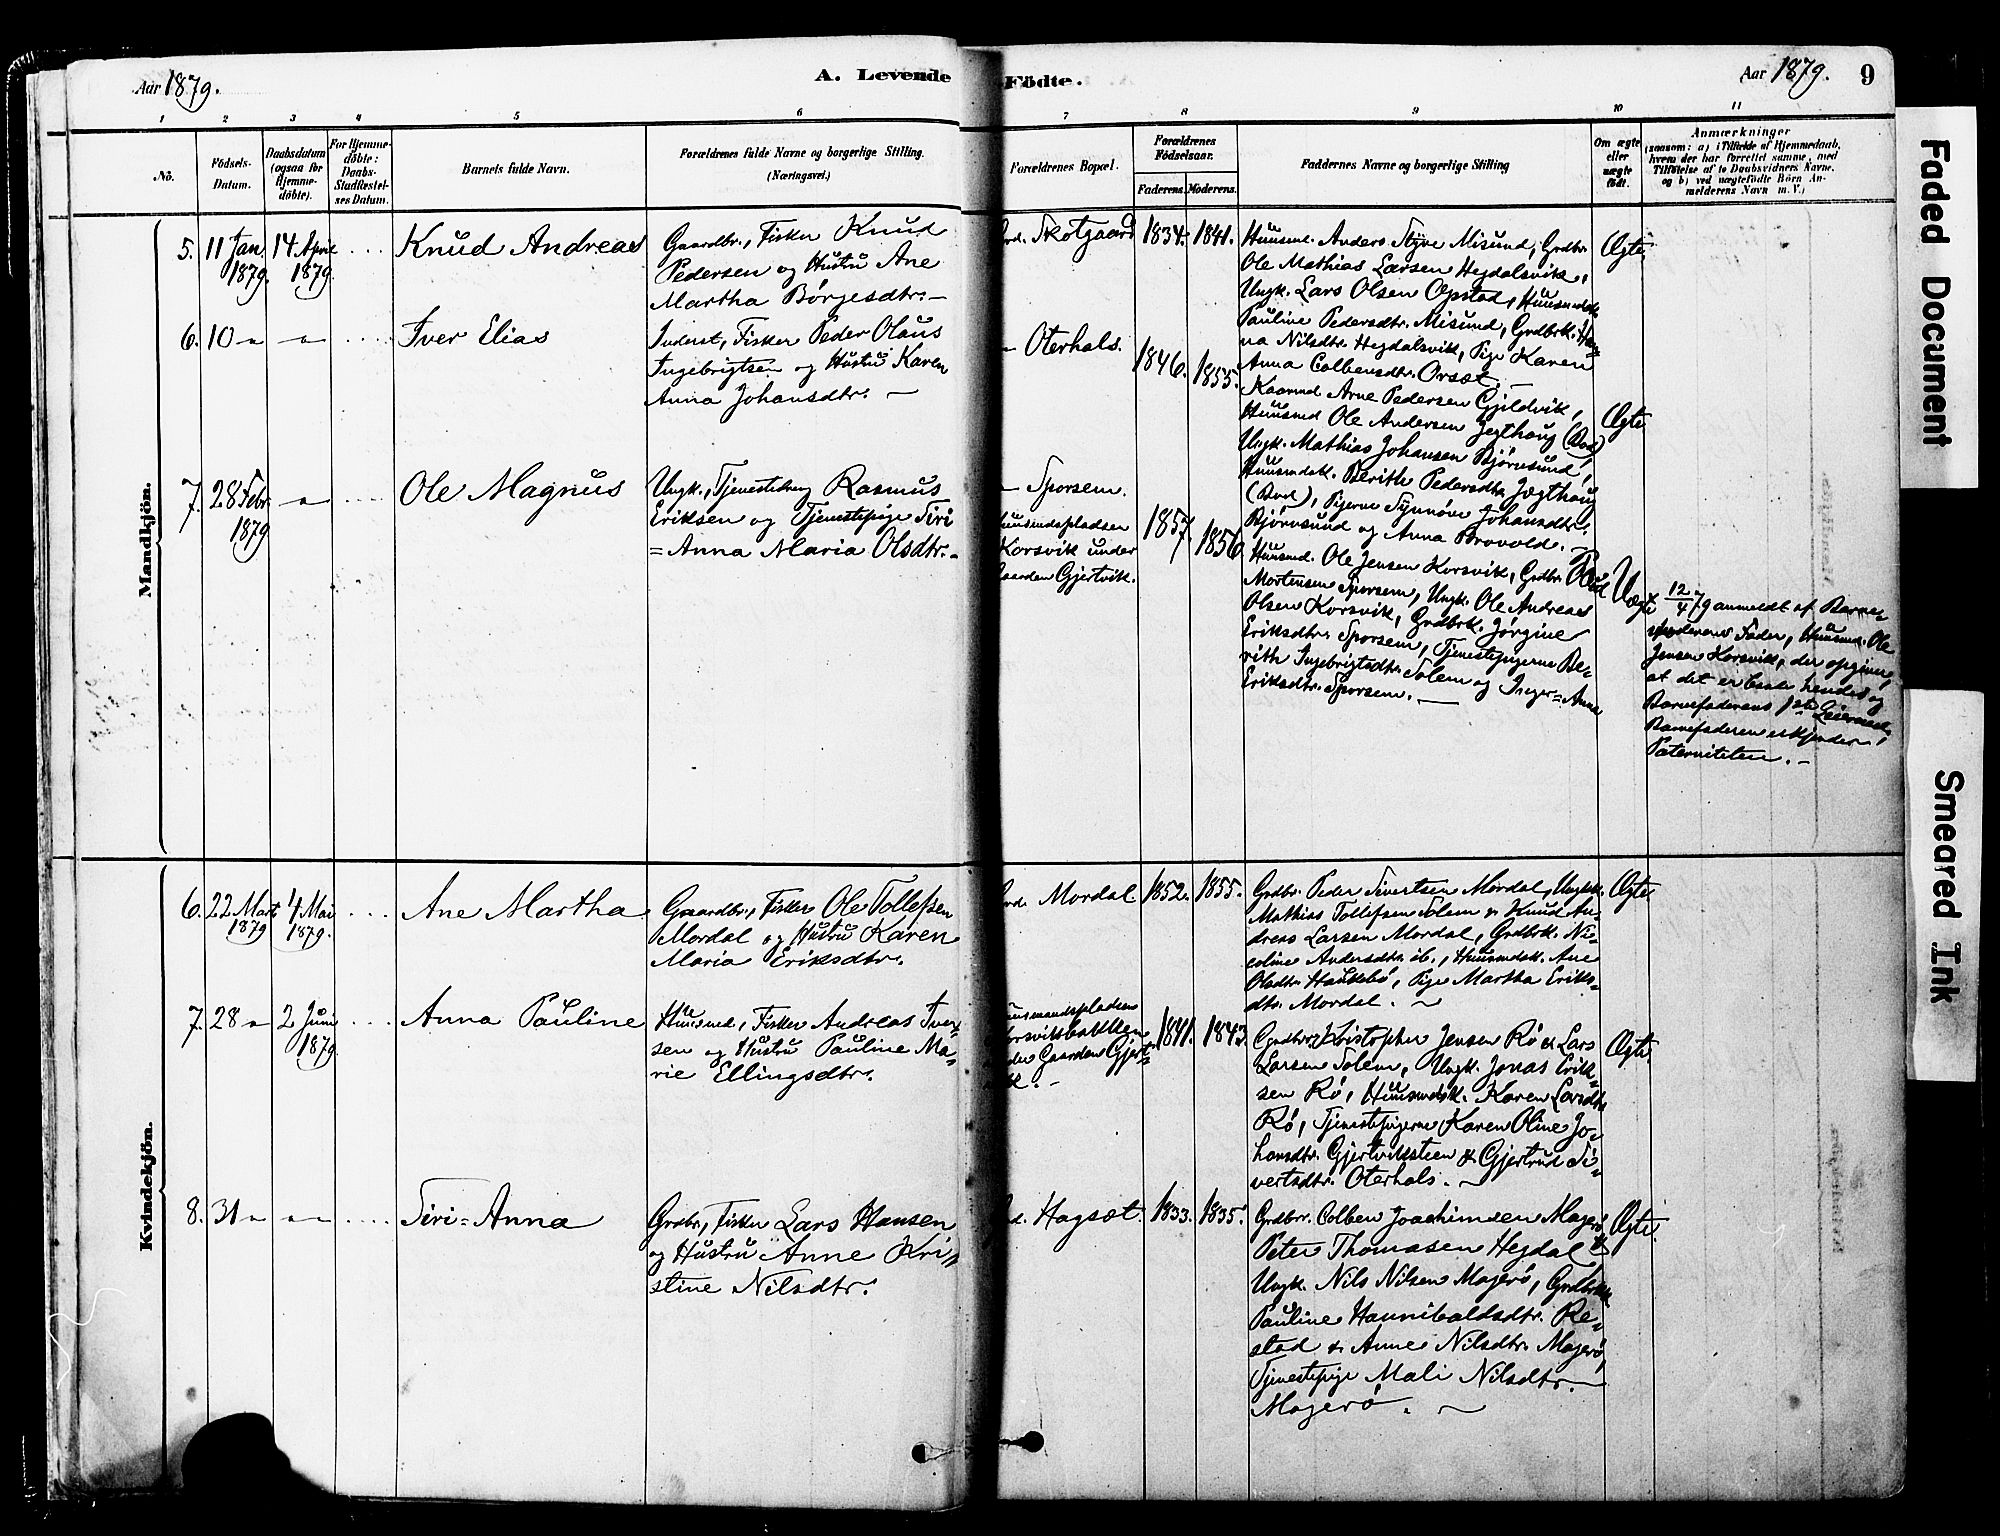 Aar 1879.
A. Levende
Födte.
Aar 1879. 9
1 2 3 4 5 6 7 8 9 10 11
No.
Födsels-
Datum.
Daabsdatum
(ogsaa for
Hjemme-
döbte).
For Hjemme-
döbte:
Daabs-
Stadfæstel-
ses Datum.
Barnets fulde Navn.
Forældrenes fulde Navne og borgerlige Stilling.
(Næringsvei.)
Forældrenes Bopæl.
Forældrenes
Födselsaar.
Faderens. Moderens.
Faddernes Navne og borgerlige Stilling
Om ægte
eller
uægte
födt.
Anmærkninger
(saasom: a) i Tilfælde af Hjemmedaab,
hvem der har forrettet samme, med
Tilföielse af to Daabsvidners Navne,
og b) ved uægtefödte Börn An-
melderens Navn m. V.)
Mandkjön.
5. 11 Jan. 1879. 14 April 1879. Knud Andreas
Gaardbr., Fisker Knud
Pedersen og Hustru Ane
Martha Börgesdtr. –
Skotgaard 1834. 1841.
Huusmd. Anders Misund, Grdbr.
Ole Mathias Larsen Hegdalsvik,
Ungk. Lars Olsen Opstad, Huusmdsk.
Pauline Pedersdtr. Misund, Grdbrk.
na Nilsdtr. Hegdalsvik, Pige Karen
Anna Colbensdtr. Orsæt. –
Ægte
6. 10 " " Iver Elias
Inderst, Fisker Peder Olaus
Ingebrigtsen og Hustru Karen
Anna Johansdtr. –
– Oterhals. 1846. 1855.
Kaarmd. Arne Pedersen Gjeldvik,
Huusmd Ole Andersen Jegthaug (Bud)
Ungk. Mathias Johansen Björnsund,
Huusmdsk. Berith Pedersdtr. Jægthaug
(Bud), Pigerne Synnöve Johansdtr.
Björnsund og Anna Brovold. –
Ægte
7. 28 Febr. 1879 " Ole Magnus
Ungk., Tjenestedreng Rasmus
Eriksen og Tjenestepige Siri
= Anna Maria Olsdtr. –
– Sporsem.
Huusmandspladsen
Korsvik under
Gaarden Gjertvik.
1857. 1856
Huusmd. Ole Jensen Korsvik, Grdbr. Ole
Mortensen Sporsem, Ungk. Ole Andreas
Olsen Korsvik, Grdbrk. Jörgine
Eriksdtr. Sporsem, Tjenestepigerne Be-
rith Ingebrigtsdtr. Solem og Inger=Anna
Eriksdtr. Sporsem. –
Uægte
12/4 79 anmeldt af Barne-
moderens Fader, Huusmd. Ole
Jensen Korsvik, der opgiver,
at det er baade hendes og
Barnefaderens 1ste Leiermaal,
Barnefaderen erkjender
Paterniteten. –
Kvindekjön.
6. 22 Mart 1879 4 Mai 1879. Ane Martha
Gaardbr., Fisker Ole Tollefsen
Mordal og Hustru Karen
Maria Eriksdtr.
Mordal. 1852. 1855.
Grdbr. Peder Sivertsen Mordal, Ungkk.
Mathias Tollefsen Solem & Knud An-
dreas Larsen Mordal, Grdbrk. Ni-
coline Andersdtr. ib., Huusmdsk. Ane
Olsdtr. Haukebö, Pige Martha Eriks-
dtr. Mordal. –
Ægte
7. 28 " 2 Juni 1879. Anna Pauline
Huusmd, Fisker Andreas Iver-
sen og Hustru Pauline Ma-
rie Ellingsdtr.
Huusmandspladsen
Gaarden Gjert-
1841. 1843.
Grdbrr. Kristopher Jensen Rö & Lars
Larsen Solem, Ungk. Jonas Erik-
sen Rö, Huusmdsk. Karen Larsdtr.
Rö, Tjenestepigerne Karen Oline Jo-
hansdtr. Gjertviksteen & Gjertrud Si-
vertsdtr. Oterhals. –
Ægte
8. 31 " " Siri=Anna
Grdbr, Fisker Lars Hansen
og Hustru Anne Kri-
stine Nilsdtr.
Hagsæt. 1833. 1835.
Grdbrr. Colben Joachimsen Magerö &
Peter Thomasen Hegdal,
Ungk. Nils Nilsen Magerö, Grdbrkk
Pauline Hannibaldsdtr. Re-
stad & Anne Nilsdtr. Magerö,
Tjenestepige Mali Nilsdtr.
Magerö. –
Ægte
Faded Document
Smeared Ink